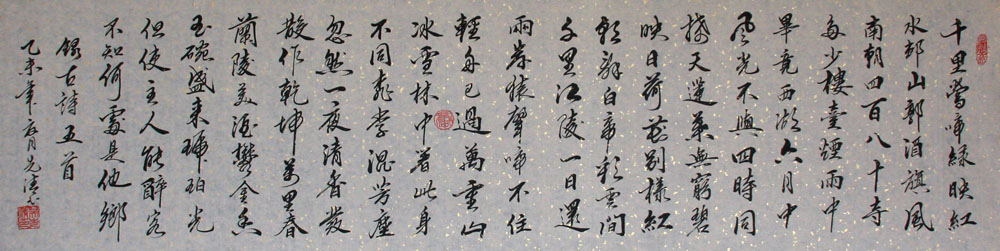 千里鶯啼緑映紅
水邨山郭酒旗風
南朝四百八十寺
多少樓臺煙雨中
畢竟西湖六月中
風光不與四時同
接天蓮葉無窮碧
映日荷花别樣紅
朝辭白帝彩雲間
千里江陵一日還
兩岸猿聲啼不住
輕舟已過萬重山
冰雪林中著此身
不同桃李混芳塵
忽然一夜清香發
散作乾坤萬里春
蘭陵美酒鬱金香
玉碗盛来琥珀光
但使主人能醉客
不知何處是他鄉
録古詩五首
乙未年